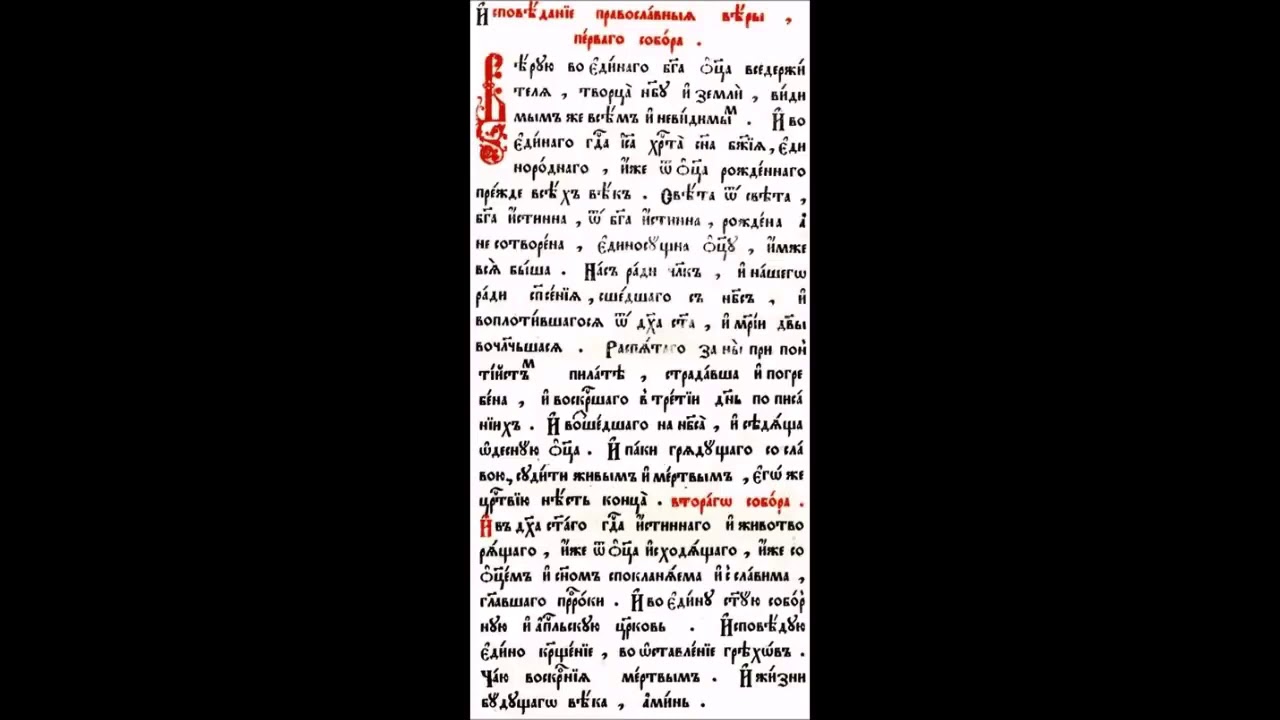 И҆сповѣ́данїе правосла́вныя вѣ́ры ,
пе́рваго собо́ра .
Вѣ́рую во є҆ди́наго бг҃а ѻ҆ц҃а̀ вседержи́
телѧ , творца̀ нб҃у и҆ землѝ , ви́ди
мымъ же всѣ́мъ и҆ неви́димыⷨ . И҆ во
є҆ди́наго гдⷭ҇а і҆с҃а хрⷭ҇та̀ сн҃а бж҃їѧ , є҆ди
норо́днаго , и҆́же ѿ ѻ҆ц҃а̀ рожде́ннаго
пре́жде всѣ́хъ вѣ́къ . Свѣ́та ѿ свѣ́та ,
бг҃а и҆́стинна , ѿ бг҃а и҆́стинна , рожде́на а҆
не сотворе́на , є҆диносу́щна ѻ҆ц҃у , и҆́мже
всѧ̀ бы́ша . На́съ ра́ди чл҃къ , и҆ на́шегѡ
ра́ди сп҃се́нїѧ , сше́дшаго съ нб҃съ , и҆
воплоти́вшагосѧ ѿ дх҃а ст҃а , и҆ мр҃і́и дв҃ы
вочл҃чьшасѧ . Распѧ́таго за ны̀ при пон̾
ті́йстѣⷨ пила́тѣ , страда́вша и҆ погре
бе́на , и҆ воскрⷭ҇шаго в̾ тре́тїи дн҃ь по писа́
нїихъ . И҆ возше́дшаго на нб҃са̀ , и҆ сѣдѧ́ща
ѡ҆десну́ю ѻ҆ц҃а̀ . И҆ па́ки грѧду́щаго со сла́
вою , суди́ти живы́мъ и҆ ме́ртвымъ , є҆гѡ́ же
црⷭ҇твїю нѣ́сть конца̀ . втора́гѡ собо́ра .
И҆ въ дх҃а ст҃а́го гдⷭ҇а и҆́стиннаго и҆ животво
рѧ́щаго , и҆́же ѿ ѻ҆ц҃а̀ и҆сходѧ́щаго , и҆́же со
ѻ҆ц҃е́мъ и҆ сн҃омъ спокланѧ́ема и҆ с̾сла́вима ,
гл҃авшаго прⷪ҇ро́ки . И҆ во є҆ди́ну ст҃у́ю собо́р̾
ную и҆ а҆пⷭ҇льскую цр҃ковь . И҆сповѣ́дую
є҆ди́но крⷭ҇ще́нїе , во ѡ҆ставле́нїе грѣхо́въ .
Ча́ю воскрⷭ҇нїѧ ме́ртвымъ . И҆ жи́зни
бу́дущагѡ вѣ́ка , а҆ми́нь .